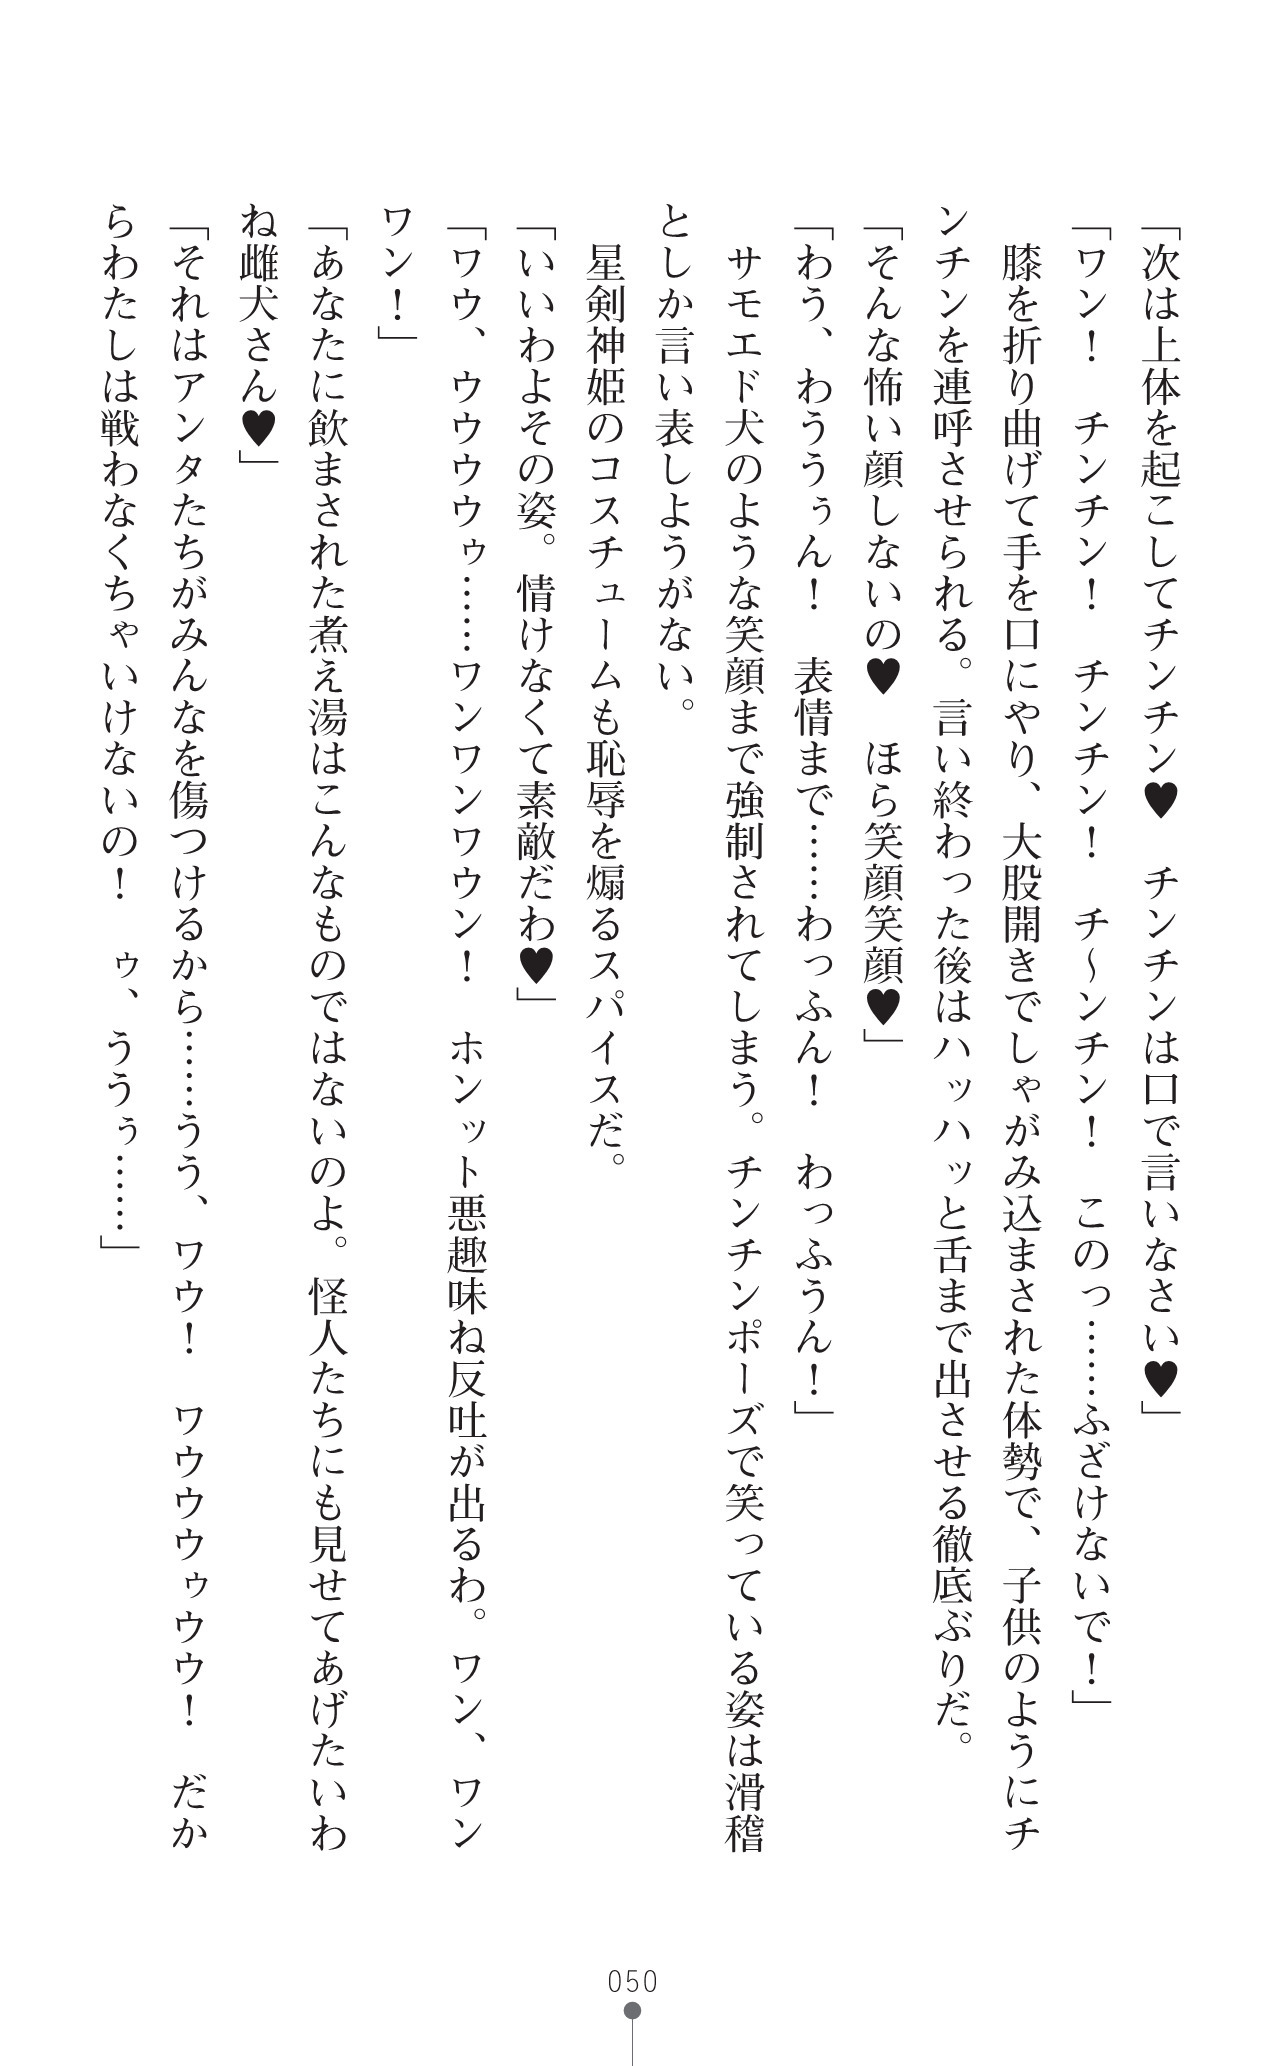 「次は上体を起こしてチンチン♥　チンチンは口で言いなさい♥」
「ワン！　チンチン！　チンチン！　チ～ンチン！　このっ……ふざけないで！」
　膝を折り曲げて手を口にやり、大股開きでしゃがみ込まされた体勢で、子供のようにチ
ンチンを連呼させられる。言い終わった後はハッハッと舌まで出させる徹底ぶりだ。
「そんな怖い顔しないの♥　ほら笑顔笑顔♥」
「わう、わううぅん！　表情まで……わっふん！　わっふうん！」
　サモエド犬のような笑顔まで強制されてしまう。チンチンポーズで笑っている姿は滑稽
としか言い表しようがない。
　星剣神姫のコスチュームも恥辱を煽るスパイスだ。
「いいわよその姿。情けなくて素敵だわ♥」
「ワウ、ウウウウゥ……ワンワンワウン！　ホンット悪趣味ね反吐が出るわ。ワン、ワン
ワン！」
「あなたに飲まされた煮え湯はこんなものではないのよ。怪人たちにも見せてあげたいわ
ね雌犬さん♥」
「それはアンタたちがみんなを傷つけるから……うう、ワウ！　ワウウウゥウウ！　だか
らわたしは戦わなくちゃいけないの！　ゥ、ううぅ……」
050